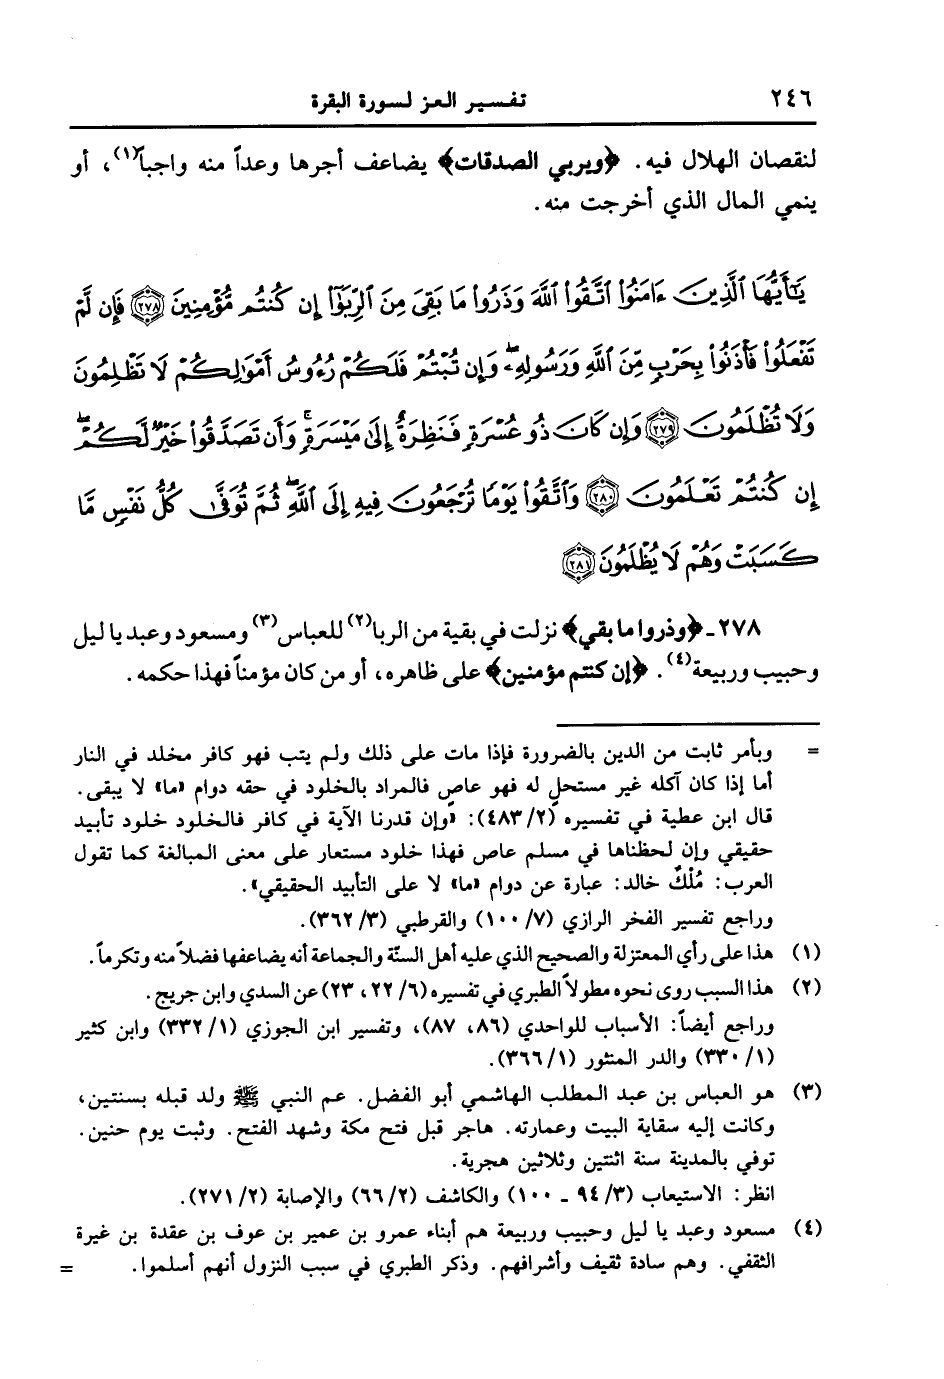 ٢٤٦ تفسير العز لسورة البقرة
لنقصان الهلال فيه. ﴿ويربي الصدقات﴾ يضاعف أجرها وعداً منه واجباً(١)، أو
ينمي المال الذي أخرجت منه.
يَٰٓأَيُّهَا ٱلَّذِينَ ءَامَنُوا۟ ٱتَّقُوا۟ ٱللَّهَ وَذَرُوا۟ مَا بَقِىَ مِنَ ٱلرِّبَوٰٓا۟ إِن كُنتُم مُّؤْمِنِينَ ﴿٢٧٨﴾ فَإِن لَّمْ
تَفْعَلُوا۟ فَأْذَنُوا۟ بِحَرْبٍ مِّنَ ٱللَّهِ وَرَسُولِهِۦ ۖ وَإِن تُبْتُمْ فَلَكُمْ رُءُوسُ أَمْوَٰلِكُمْ لَا تَظْلِمُونَ
وَلَا تُظْلَمُونَ ﴿٢٧٩﴾ وَإِن كَانَ ذُو عُسْرَةٍ فَنَظِرَةٌ إِلَىٰ مَيْسَرَةٍ ۚ وَأَن تَصَدَّقُوا۟ خَيْرٌ لَّكُمْ ۖ
إِن كُنتُمْ تَعْلَمُونَ ﴿٢٨٠﴾ وَٱتَّقُوا۟ يَوْمًا تُرْجَعُونَ فِيهِ إِلَى ٱللَّهِ ۖ ثُمَّ تُوَفَّىٰ كُلُّ نَفْسٍ مَّا
كَسَبَتْ وَهُمْ لَا يُظْلَمُونَ ﴿٢٨١﴾
٢٧٨ـ ﴿وذروا ما بقي﴾ نزلت في بقية من الربا(٢) للعباس(٣) ومسعود وعبد يا ليل
وحبيب وربيعة(٤). ﴿إن كنتم مؤمنين﴾ على ظاهره، أو من كان مؤمناً فهذا حكمه.
= وبأمر ثابت من الدين بالضرورة فإذا مات على ذلك ولم يتب فهو كافر مخلد في النار
أما إذا كان آكله غير مستحل له فهو عاصٍ فالمراد بالخلود في حقه دوام «ما» لا يبقى.
قال ابن عطية في تفسيره (٢/ ٤٨٣): «وإن قدرنا الآية في كافر فالخلود خلود تأبيد
حقيقي وإن لحظناها في مسلم عاص فهذا خلود مستعار على معنى المبالغة كما تقول
العرب: مُلْكٌ خالد: عبارة عن دوام «ما» لا على التأبيد الحقيقي».
وراجع تفسير الفخر الرازي (٧/ ١٠٠) والقرطبي (٣/ ٣٦٢).
(١) هذا على رأي المعتزلة والصحيح الذي عليه أهل السنّة والجماعة أنه يضاعفها فضلاً منه وتكرماً.
(٢) هذا السبب روى نحوه مطولاً الطبري في تفسيره (٦/ ٢٢، ٢٣) عن السدي وابن جريج.
وراجع أيضاً: الأسباب للواحدي (٨٦، ٨٧)، وتفسير ابن الجوزي (١/ ٣٣٢) وابن كثير
(١/ ٣٣٠) والدر المنثور (١/ ٣٦٦).
(٣) هو العباس بن عبد المطلب الهاشمي أبو الفضل. عم النبي ﷺ ولد قبله بسنتين،
وكانت إليه سقاية البيت وعمارته. هاجر قبل فتح مكة وشهد الفتح. وثبت يوم حنين.
توفي بالمدينة سنة اثنتين وثلاثين هجرية.
انظر: الاستيعاب (٣/ ٩٤ ـ ١٠٠) والكاشف (٢/ ٦٦) والإصابة (٢/ ٢٧١).
(٤) مسعود وعبد يا ليل وحبيب وربيعة هم أبناء عمرو بن عمير بن عوف بن عقدة بن غيرة
الثقفي. وهم سادة ثقيف وأشرافهم. وذكر الطبري في سبب النزول أنهم أسلموا. =